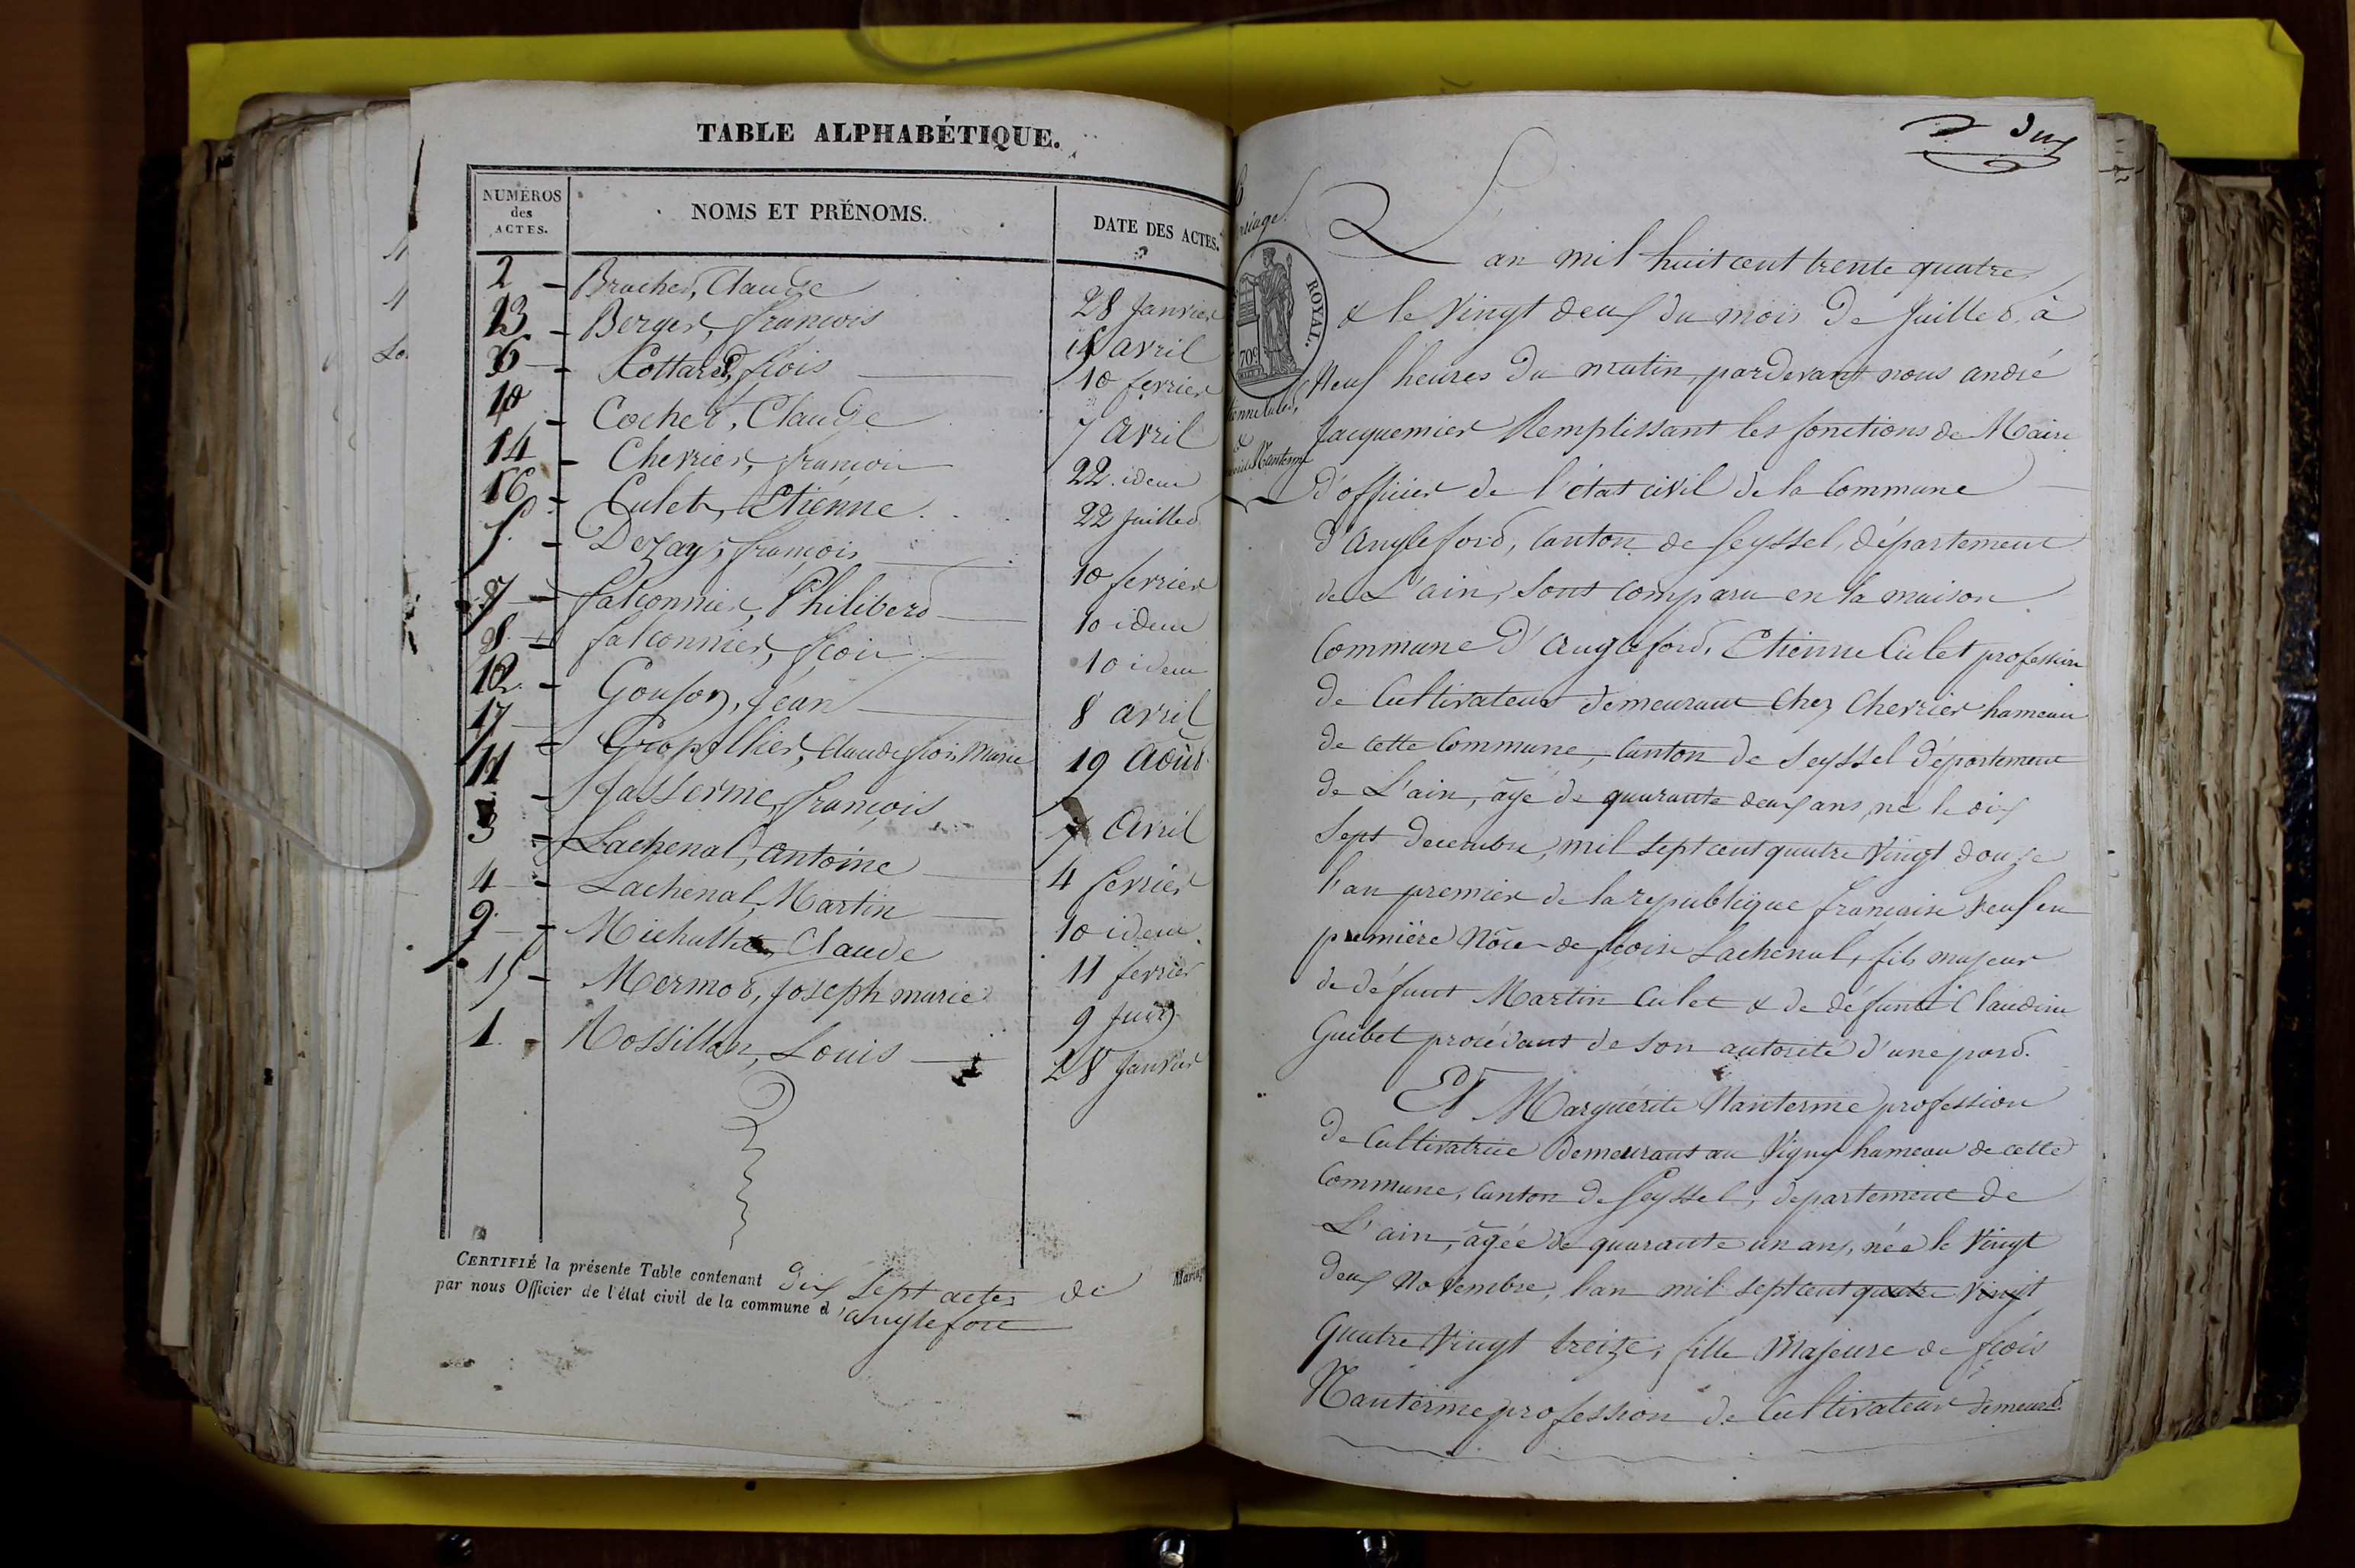 TABLE ALPHABÉTIQUE.
NUMÉROS des ACTES. NOMS ET PRÉNOMS. DATE DES ACTES.
2 Brachet, Claude 28 Janvier
13 Berger, françois avril
6 Cottard, fcois 10 fevrier
10 Cochet, Claude 7 avril
14 Chevrier, françois 22 idem
16 Culet, Etienne 22 Juillet
5. Dezay, françois 10 fevrier
7 falconnier, Philiberd 10 idem
8. falconnier, fcois 10 idem
12. Goujon, Jean 8 avril
17 Gropellier, Claude fcois Marie 19 Août
11 Jasserme, françois 7 Avril
3 Lachenal, antoine 4 fevrier
4 Lachenal, Martin 10 idem
9. Claude 11 fevrier
15 Mermod, Joseph marie 9 Juin
1. Rossillon, Louis 28 Janvier
CERTIFIÉ la présente Table contenant dix sept actes de Mariage
par nous Officier de l'état civil de la commune d'anglefort
ROYAL.
L'an mil huit cent trente quatre
& le vingt deux du mois de Juilled, à
Neuf heures du matin, pardevant nous andré
Jacquemier Remplissant les fonctions de Maire
d'officier de l'état civil de la Commune
d'Angleford, canton de Seyssel, département
de L'ain, sont comparu en la maison
Commune d'Angleford, Etienne Culet profession
de Cultivateur demeurant chez Chevrier hameau
de cette Commune, canton de Seyssel département
de L'ain, âgé de quarante deux ans, né le dix
sept decembre, mil sept cent quatre vingt douze
l'an premier de la republique française veuf en
première Nôce de fcoise Lachenal, fils majeur
de défunt Martin Culet & de défunte Claudine
Guibet procédant de son autorité d'une pard.
Et Marguérite Nanterme profession
de Cultivatrice demeurant au Vigny hameau de cette
Commune, canton de Seyssel, département de
L'ain, âgée de quarante un ans, née le vingt
deux Novembre, l'an mil sept cent quatre vingt
Quatre Vingt treize, fille Majeure de fcois
Nanterme profession de Cultivateur demeurd.